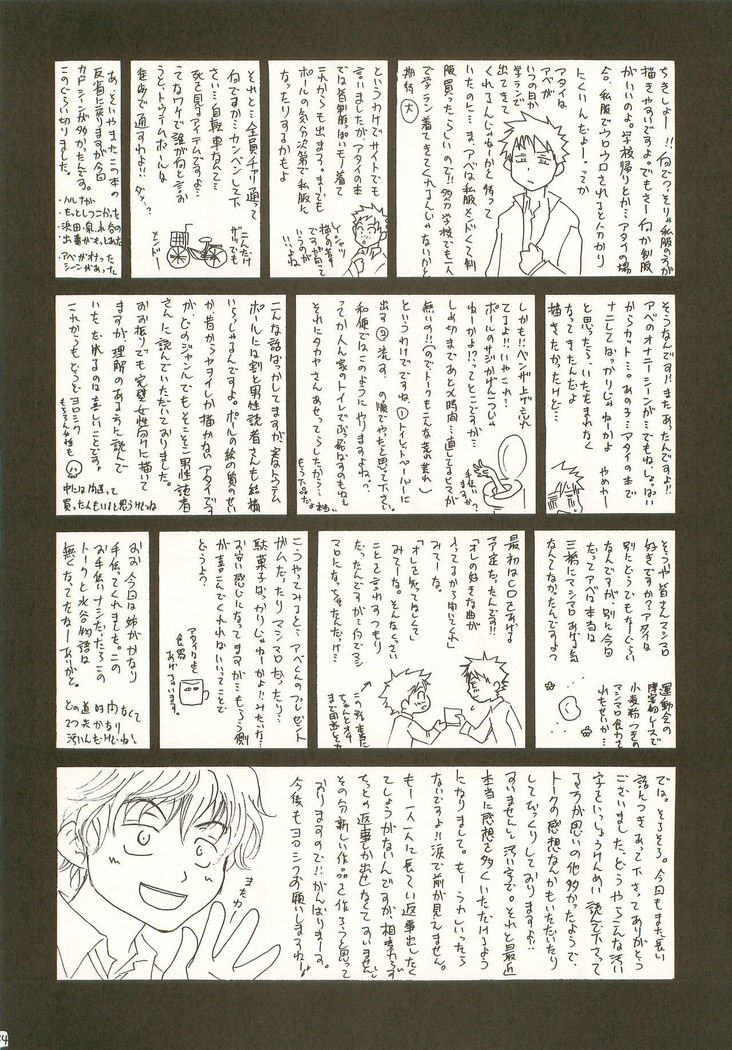 ちきしょー!!何で?そりゃ私服の方が
描きやすですよ。でもさー何か制服
がいいのよ。学校帰りとか…アタイの場
合、私服でウロウロされるとわかり
にくいんだよー。ってか
アタイは
アベが
いつの日か
学ランで
出てきて
くれるんじゃねーかと待って
いたのに…ま、アベは私服メンドくて制
服買ったらしいので!!多分学校でも一人
で学ラン着てきてくれるんじゃないかと
期待(大)
というわけでサイトでも
言いましたがアタイの本
では皆制服ぽいモノ着て
これからも出ます。までも
ポールの気分次第で私服に
なったりするかもよ
それと…全員チャリ通って
何ですか…カンベンして下
さい…自転車なんて…
死を見るアイテムですよ…
てなワケで誰が何と言お
うと、トウテムポールは
徒歩で通すわよ!!ダッ。
こんだけ
ザツでも
メンドー
あ、そいやまたこの本の
反省に戻りますが今回
カットシーンが多かったんです。
このぐらい切りました。
・ハルナが
もっとしつこかった
・浜田・泉・水谷の
出番がオットあった
・アベがオワった
シーンがあった
そうなんです!!またあったんですよ!!
アベのオナニーシーンが…でもねしょっぱな
からカット…。あの子…アタイの本で
ナニしてばかりじゃねーかよ
と思ったら、いたたまれなく
なってきたんだよ
描きたかったけど…
やめれー
しかも!!ベンザ上げ忘れ
てるよ!!いやこれ…
ポールのサジかげんつうじゃ
ねーかよ!?ってとこですが…
しめ切まであと〆時間…直してるヒマが
無いの!!(のでトークもこんな荒れ荒れ)
というわけでですね、①トイレットペーパーに
出す②流す、の順でやったと思って下さい。
和便ではこのようにやりますよね?
ってか人ん家のトイレでぶっ放すのもねし
それにタカヤさんあせってらしたから…
こんな話ばっかしてますが実はトウテム
ポールには割と男性読者さんも結構
いらっしゃるんですよ。ポールの絵の質のせい
か昔からヤヨイしか描かないアタイです
が、どのジャンルでもそこそこ男性読者
さんに読んでいただいておりました。
おお振りでも完璧女性向けに描いて
ますが理解のある方に読んで
いただけるのは喜しいことです。
これからもどうぞヨロシク
もちろん女性も
中には間違って
買ったもいると思うけどね
そういや皆さんマシマロ
好きですか?アタイは
別にどうでもなーぐらい
なんですが、別に今回
だってアベは本当は
三橋にマシマロあげる気
なんてなかったんですよ?
運動会の
障害物レースで
小麦粉つきの
マシマロ食わさ
れたせいか…
最初はCDをあげる
予定だったんです!!
「オレの好きな曲が
入ってるから聞いてくれ」
みてーな。
「オレを知ってほしくて」
みてーな。そんなくさい
ことを言わすつもり
だったんですが…何でマシ
マロになっちゃたんだっけ…
こうやってみると…アベくんのプレゼント
がムだったりマシマロだったり…
駄菓子ばっかりじゃねーかよ!!みたいな…
お安い感じになってますが…もらう側
が喜こんでくれればいいってことで
どうよう?
アタイはもっと
食器
あげています。
おお、今回は姉がかなり
手伝ってくれました。この
お手伝いナシだったらこの
トークと水谷物語は
無くなってたなーありがと。
では。そろそろ。今回もまた長い
話につきあって下さってありがとう
ございました。どうやらこんな汚い
字をいっしょうけんめい読んで下さって
る方が思いの他多かったようで、
トークの感想なんかもいただいたり
してびっくりしております!!
すいませんど汚い字で。それと最近
本当に感想を多くいただけるよう
になりまして。もーうれしいったら
ないですよ!!涙で前が見えません。
もー一人一人に長くてい返事出したく
てしょうがないんですが、相変わらず
ちっとの返事しか出せなくてすいません
その分新しい作品を作ろうと思って
おりますので!!がんばいまーす。
今後もヨロシクお願いしまーね!!
またねー